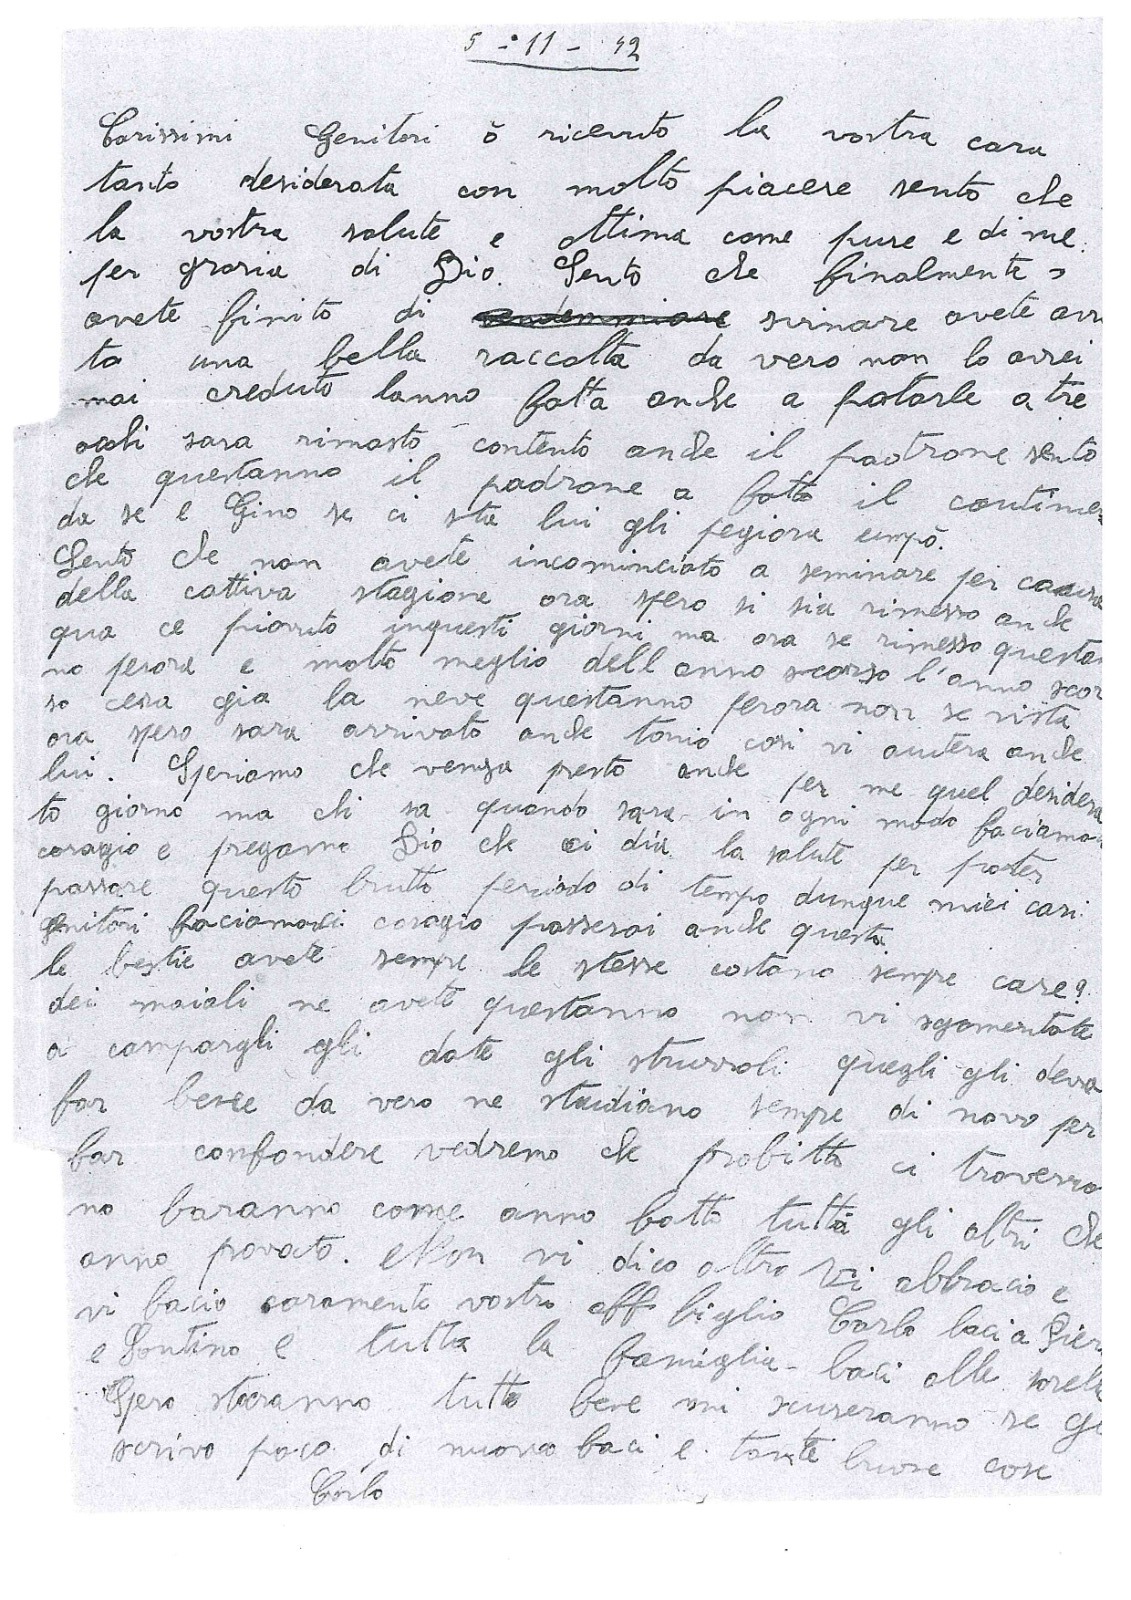 5 - 11 - 42
Carissimi Genitori ò ricevuto la vostra cara
tanto desiderata con molto piacere sento che
la vostra salute e ottima come pure e di me.
per grazia di Dio. Sento che finalmente
avete finito di vendemmiare svinare avete avu
to una bella raccolta da vero non lo avrei
mai creduto lanno fatta anche a
ochi sara rimasto contento anche il padrone sento
che questanno il padrone a fatto il
da se e Gino se ci sta lui gli pegiora empò.
Sento che non avete incominciato a seminare per causa
della cattiva stagione ora spero si sia rimesso anche
qua ce piovuto inquesti giorni ma ora se rimesso questan
no perora e molto meglio dell anno scorso l'anno scor
so cera gia la neve questanno perora non se vista
ora spero sara arrivato anche tonio cosi vi aiutera anche
lui. Speriamo che venga presto anche per me quel desidera
to giorno ma chi sa quando sara in ogni modo faciamo
coragio e pregamo Dio che ci dia la salute per poter
passare questo brutto periodo di tempo dunque miei cari
genitori faciamoci coragio passerai anche questa
le bestie avete sempre le stesse costano sempre care?
dei maiali ne avete questanno non vi sgomentate
a campargli gli date gli struzzoli quegli gli deva
far bene da vero ne studiano sempre di novo per
far confondere vedremo che probitto ci troverra
no faranno come anno fatto tutti gli altri che
anno provato. Non vi dico altro vi abbracio e
vi bacio caramente vostro aff figlio Carlo baci a Piero
e Santino e tutta la famiglia - baci alle sorelle
Spero staranno tutte bene mi scuseranno se gli
scrivo poco di nuovo baci e tante buone cose
Carlo